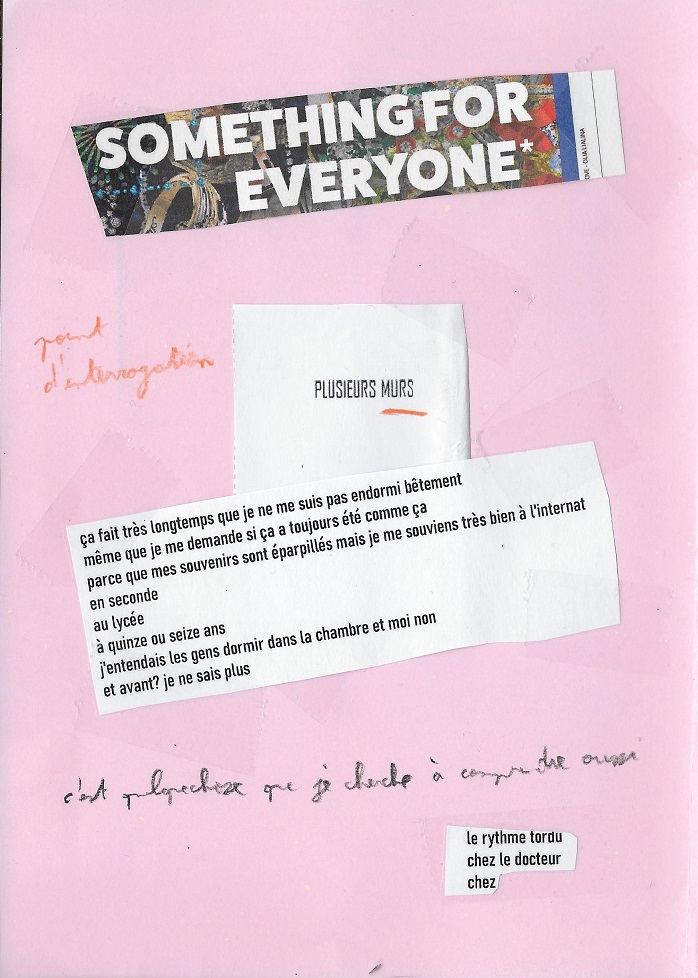 SOMETHING FOR
EVERYONE*
OVE - OLIA LIALINA
point
d'interrogation
PLUSIEURS MURS
ça fait très longtemps que je ne me suis pas endormi bêtement
même que je me demande si ça a toujours été comme ça
parce que mes souvenirs sont éparpillés mais je me souviens très bien à l'internat
en seconde
au lycée
à quinze ou seize ans
j'entendais les gens dormir dans la chambre et moi non
et avant? je ne sais plus
c'est quelquechose que je cherche à comprendre aussi
le rythme tordu
chez le docteur
chez